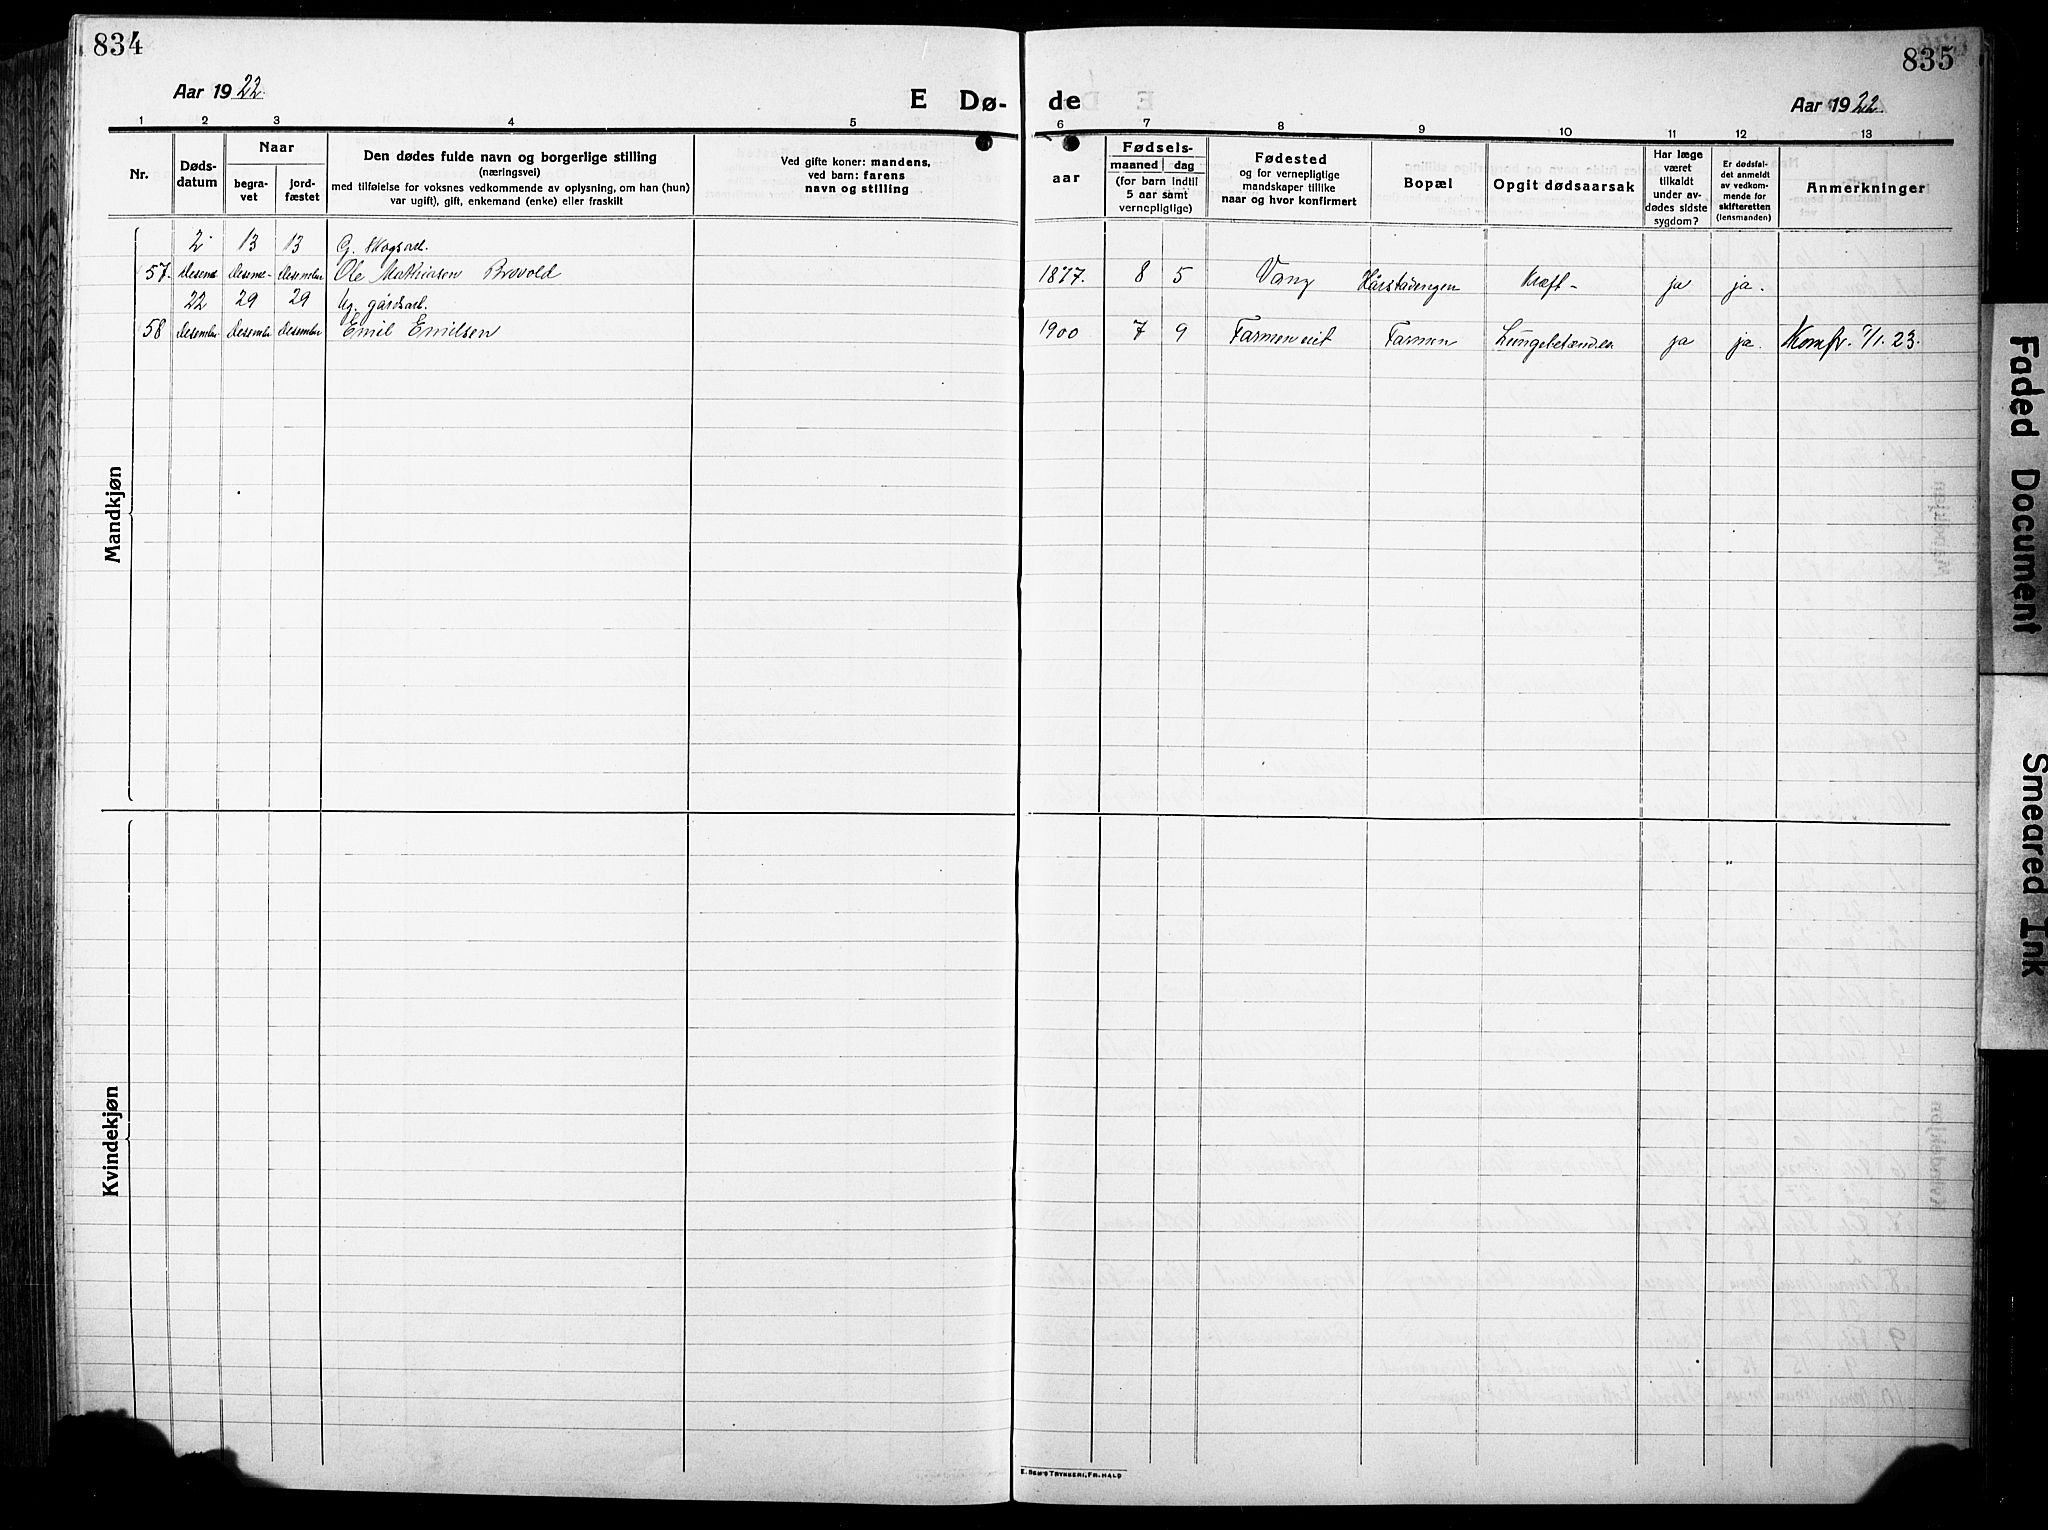 834
835
Aar 1922.
E Dø-
de
Aar 1922.
1 2 3 4 5 6 7 8 9 10 11 12 13
Nr.
Døds-
datum
Naar
begra-
vet
jord-
fæstet
Den dødes fulde navn og borgerlige stilling
(næringsvei)
med tilføielse for voksnes vedkommende av oplysning, om han (hun)
var ugift), gift, enkemand (enke) eller fraskilt
Ved gifte koner: mandens,
ved barn: farens
navn og stilling
aar
Fødsels-
maaned dag
(for barn indtil
5 aar samt
vernepligtige)
Fødested
og for vernepligtige
mandskaper tillike
naar og hvor konfirmert
Bopæl
Opgit dødsaarsak
Har læge
været
tilkaldt
under av-
dødes sidste
sygdom?
Er dødsfal-
det anmeldt
av vedkom-
mende for
skifteretten
(lensmanden)
Anmerkninger
Mandkjøn
2 13 13 G. skogsarb.
57. Desemb Desem- Desember Ole Mathiasen Brovold 1877. 8 5 Vang Hårstadengen Kræft - ja ja.
22 29 29 Ug. gårdsarb.
58 Desember Desember Desember Emil Emilsen 1900 7 9 Farmen eiet Farmen ja ja. 7/1. 23.
Kvindekjøn
E. SEM'S TRYKKERI, FR. HALD
Faded Document
Smeared Ink